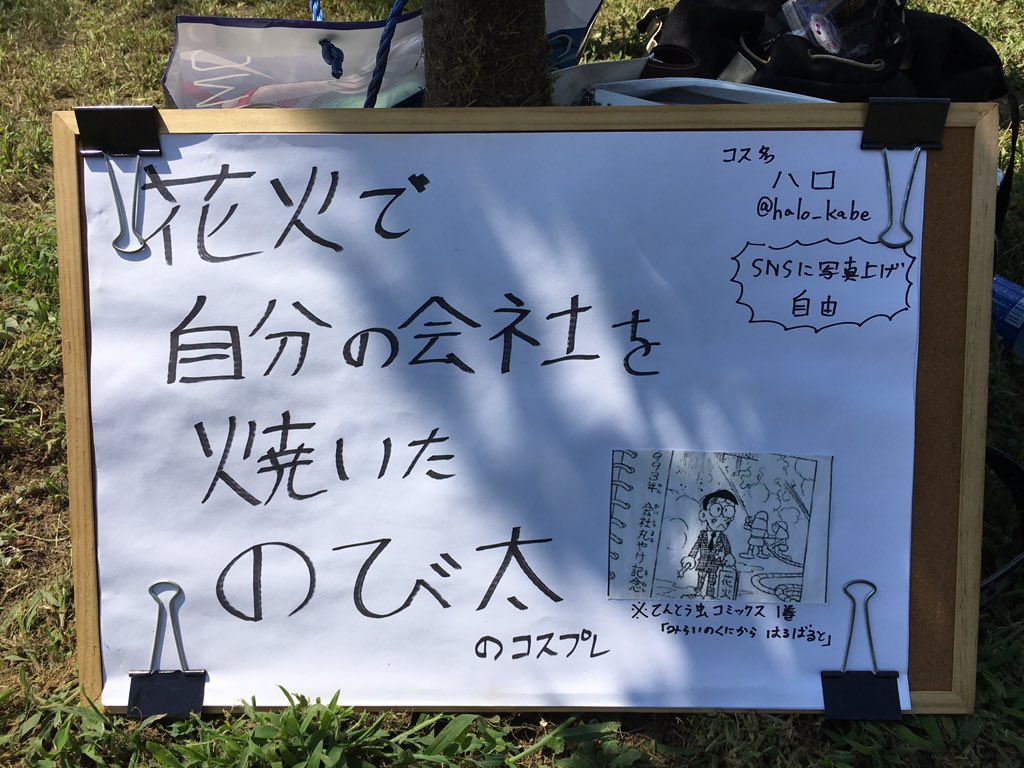 花火で
自分の会社を
焼いた
のび太
のコスプレ
コス名
ハロ
@halo_kabe
SNSに写真上げ
自由
993年 会社丸やけ記念
花火
※てんとう虫コミックス 1巻
「みらいのくにから はるばると」